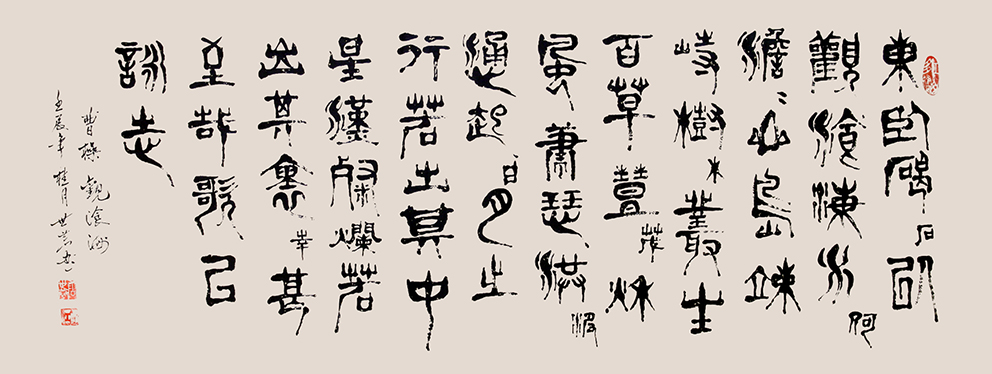 東臨碣石以
觀滄海水何
澹〻山島竦
峙樹木叢生
百草豐茂秋
風蕭瑟洪波
涌起日月之
行若出其中
星漢燦爛若
出其裏幸甚
至哉歌以
詠志
曹操觀滄海
壬辰年桂月世